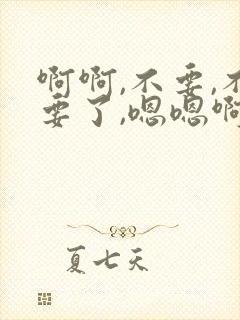 啊啊,不要,不
要了,嗯嗯啊
夏七天